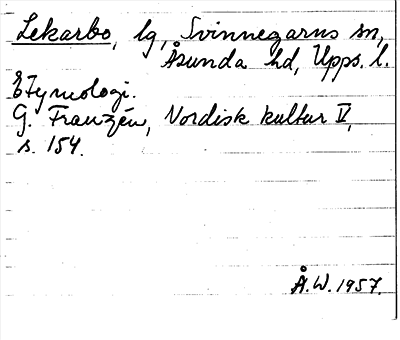 Lekarbo, lg, Svinnegarns sn,
Åsunda hd, Upps. l.
Etymologi.
G. Franzén, Nordisk kultur V,
s. 154.
Å.W. 1957.